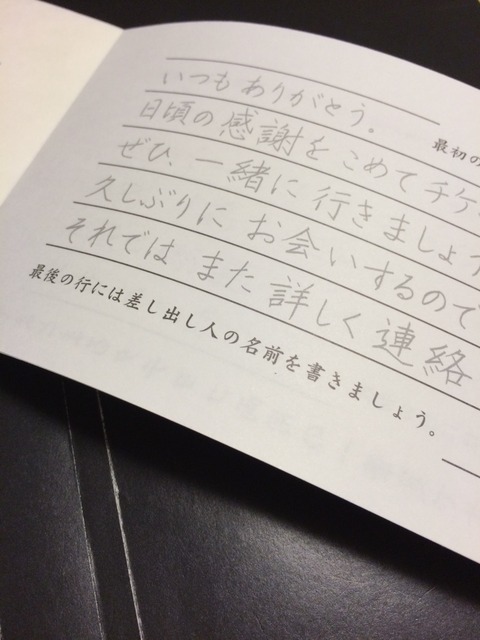 最初の
いつもありがとう。
日頃の感謝をこめてチケ
ぜひ、一緒に行きましょう
久しぶりにお会いするので
それではまた詳しく連絡
最後の行には差し出し人の名前を書きましょう。